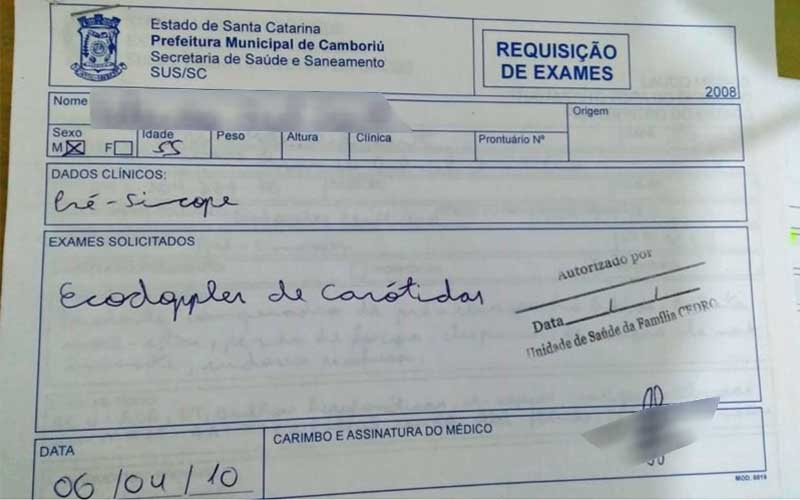 Estado de Santa Catarina
Prefeitura Municipal de Camboriú
Secretaria de Saúde e Saneamento
SUS/SC
REQUISIÇÃO
DE EXAMES
2008
Nome
Origem
Sexo
M☒ F☐
Idade
55
Peso
Altura
Clínica
Prontuário Nº
DADOS CLÍNICOS:
Pré-Síncope
EXAMES SOLICITADOS
Ecodoppler de Carótidas
Autorizado por
Data / /
Unidade de Saúde da Família CEDRO
DATA
06/04/10
CARIMBO E ASSINATURA DO MÉDICO
MOD. 0019